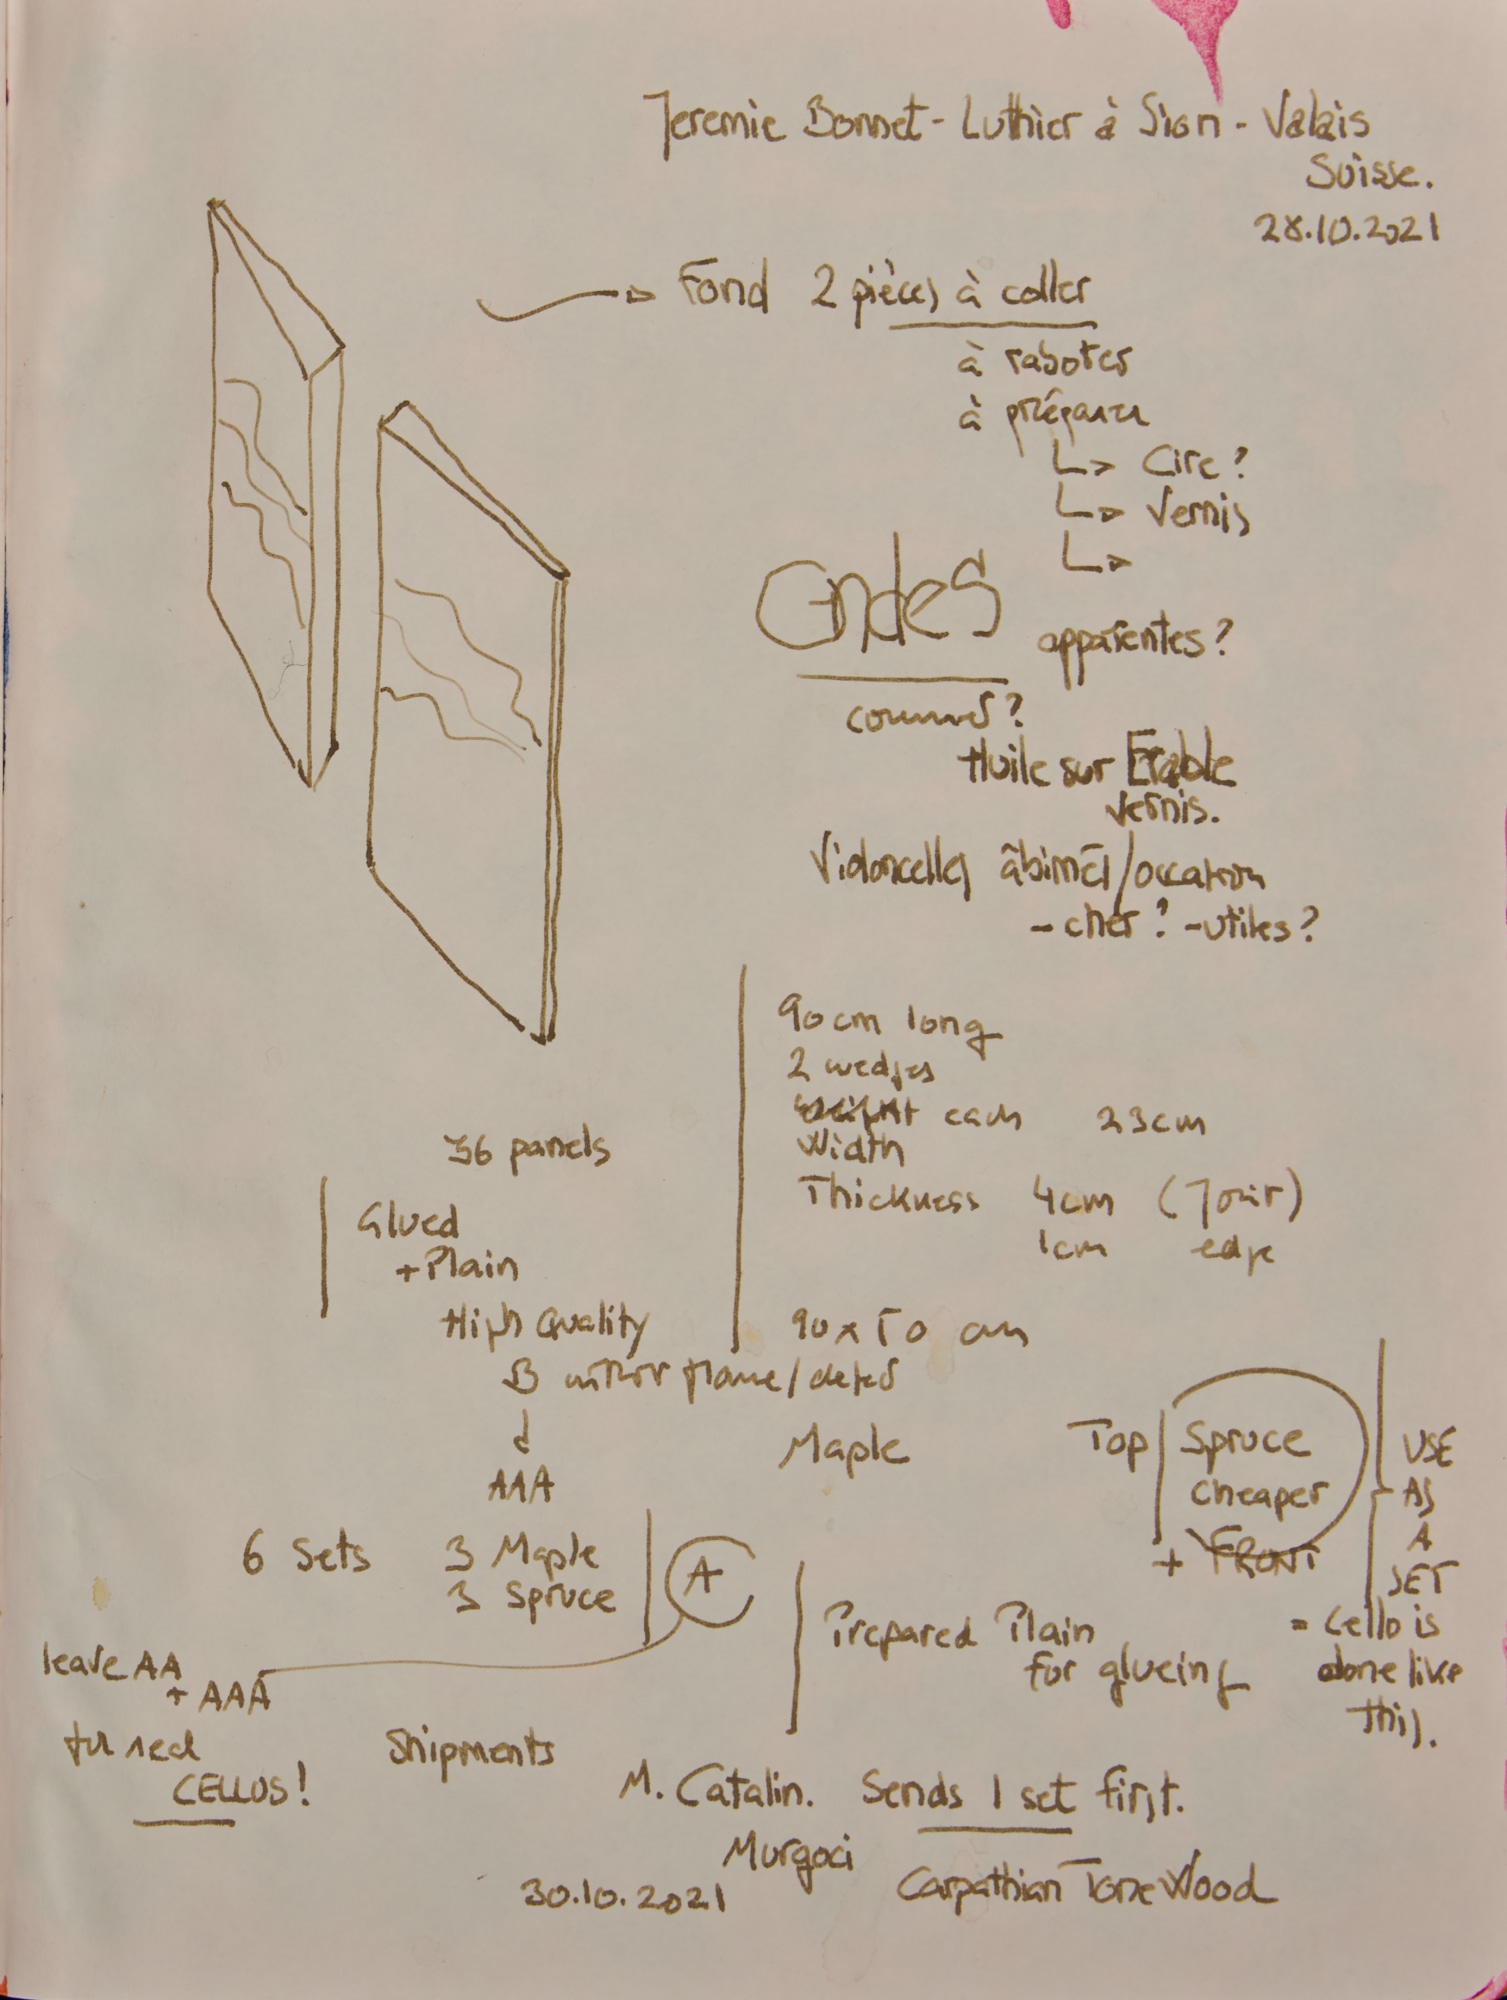 Jeremie Bonnet - Luthier à Sion - Valais
Suisse.
28.10.2021
Fond 2 pièces à coller
à raboter
à préparer
Cire ?
Vernis
Ondes
apparentes ?
comment ?
Huile sur Erable
vernis.
Violoncelles âbimés / occasion
- cher ? - utiles ?
90 cm long
2 wedges
each 23 cm
Width
Thickness 4cm (Joint)
1cm edge
36 panels
Glued
+ Plain
High Quality
90 x 50 cm
B minor flame / defect
AAA
Maple
Top Spruce
Cheaper
+ FRONT
USE
AS
A
SET
= Cello is
done like
this.
6 Sets 3 Maple
3 Spruce
A
Prepared Plain
for glueing
leave AA
+ AAA
for real
CELLOS !
Shipments
M. Catalin. Sends 1 set first.
Murgoci
30.10.2021
Carpathian ToneWood